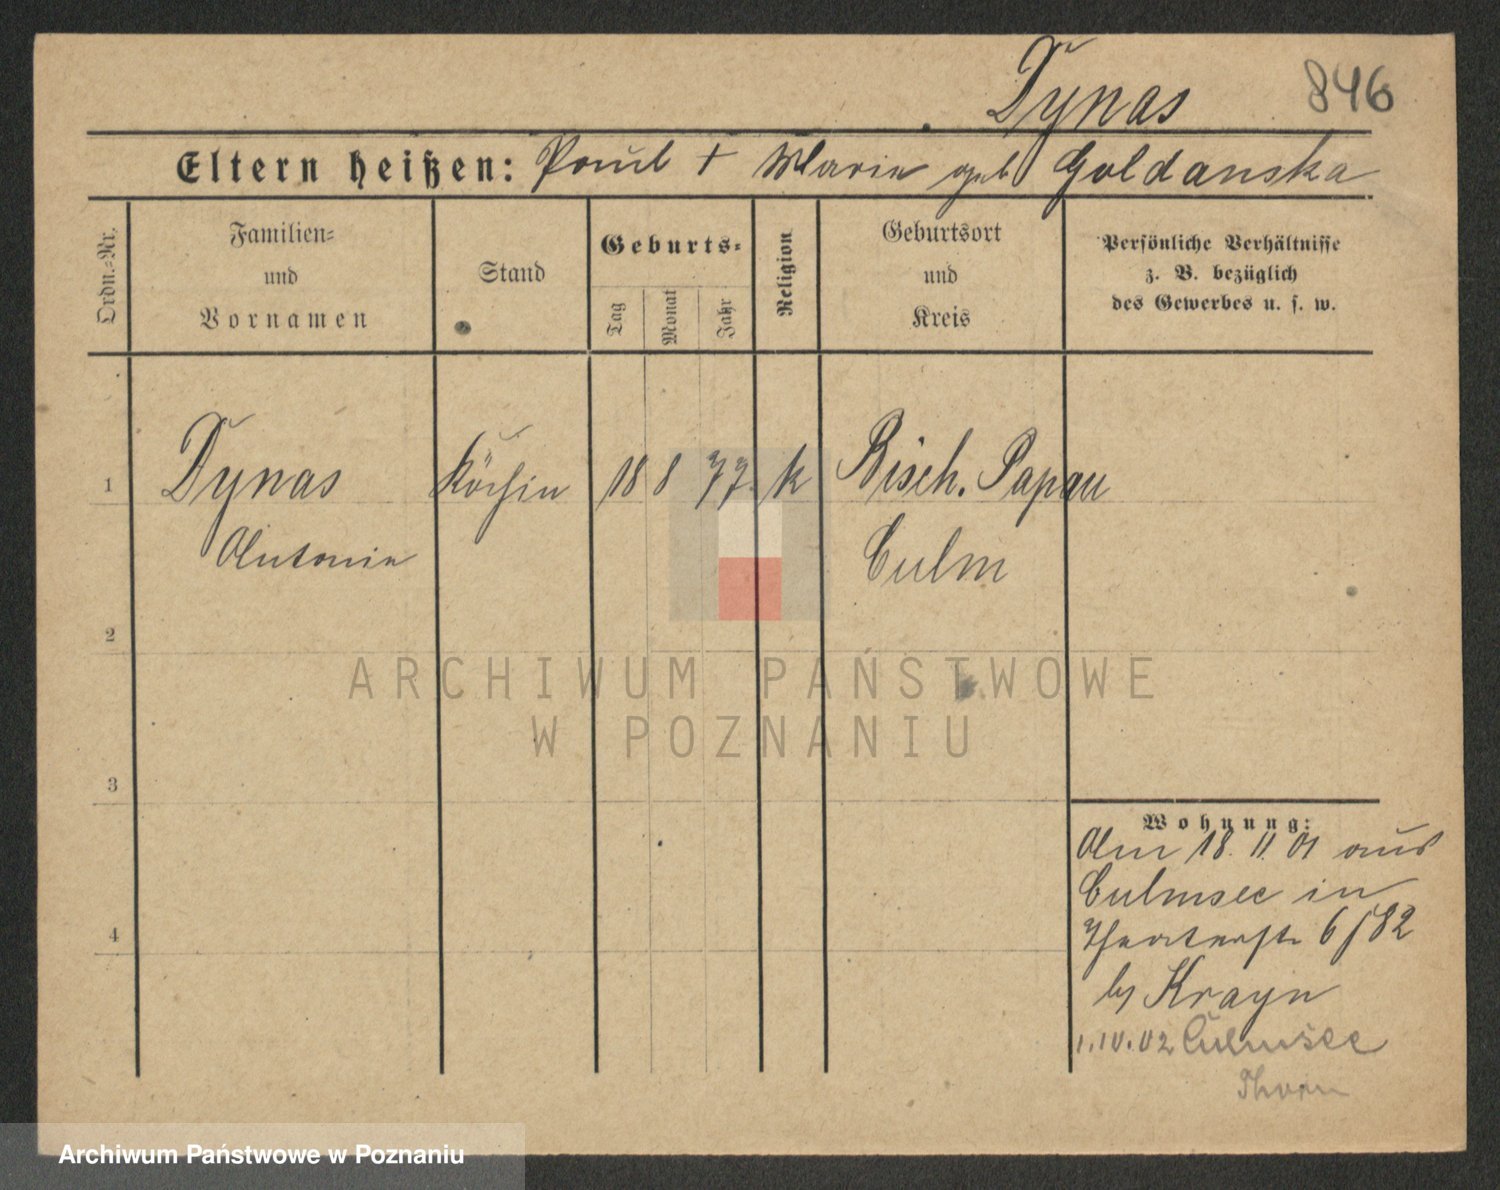 Dynas
846
Eltern heißen: Paul + Marie geb Goldanska
Ordn.-Nr.
Familien-
und
Vornamen
Stand
Geburts-
Tag
Monat
Jahr
Religion
Geburtsort
und
Kreis
Persönliche Verhältnisse
z. B. bezüglich
des Gewerbes u. s. w.
1 Dynas Köchin 18 8 77. k Bisch. Papau
Antonie Culm
2
3
4
Wohnung:
Am 18. 11. 01 aus
Culmsee in
Theaterstr 6/82
by Krayn
1.IV.02 Culmsee
Thorn
ARCHIWUM PAŃSTWOWE
W POZNANIU
Archiwum Państwowe w Poznaniu